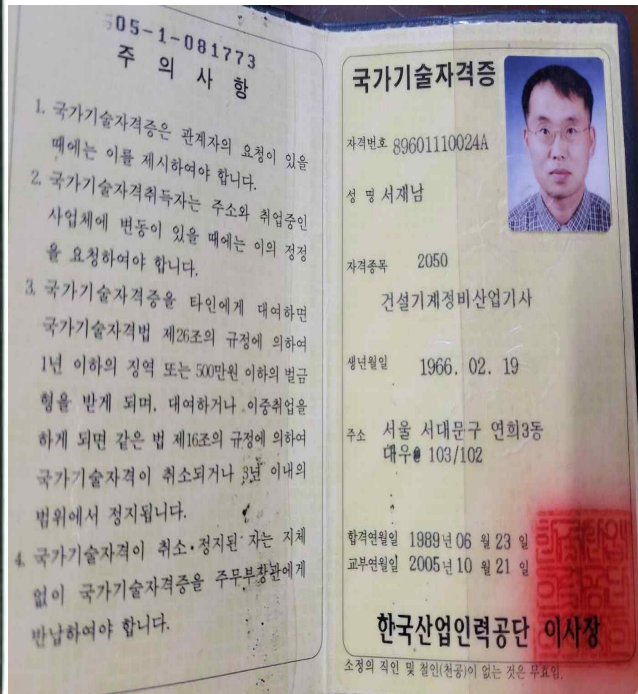 505-1-081773
주 의 사 항
1. 국가기술자격증은 관계자의 요청이 있을
때에는 이를 제시하여야 합니다.
2. 국가기술자격취득자는 주소와 취업중인
사업체에 변동이 있을 때에는 이의 정정
을 요청하여야 합니다.
3. 국가기술자격증을 타인에게 대여하면
국가기술자격법 제26조의 규정에 의하여
1년 이하의 징역 또는 500만원 이하의 벌금
형을 받게 되며, 대여하거나 이중취업을
하게 되면 같은 법 제16조의 규정에 의하여
국가기술자격이 취소되거나 3년 이내의
범위에서 정지됩니다.
4. 국가기술자격이 취소·정지된 자는 지체
없이 국가기술자격증을 주무부장관에게
반납하여야 합니다.
국가기술자격증
자격번호 89601110024A
성 명 서재남
자격종목 2050
건설기계정비산업기사
생년월일 1966. 02. 19
주소 서울 서대문구 연희3동
대우 103/102
합격연월일 1989년 06 월 23 일
교부연월일 2005년 10 월 21 일
한국산업인력공단 이사장
소정의 직인 및 철인(천공)이 없는 것은 무효임.